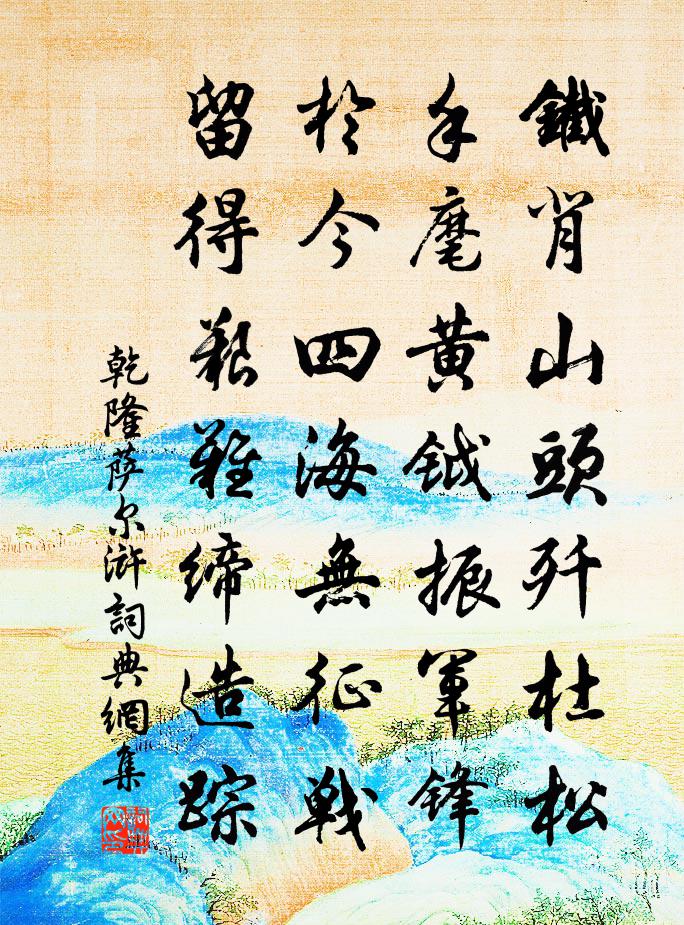 鐵背山頭殲杜松
手麾黃鉞振軍鋒
於今四海無征戰
留得艱難締造踪
乾隆薩尔滸詞典網集